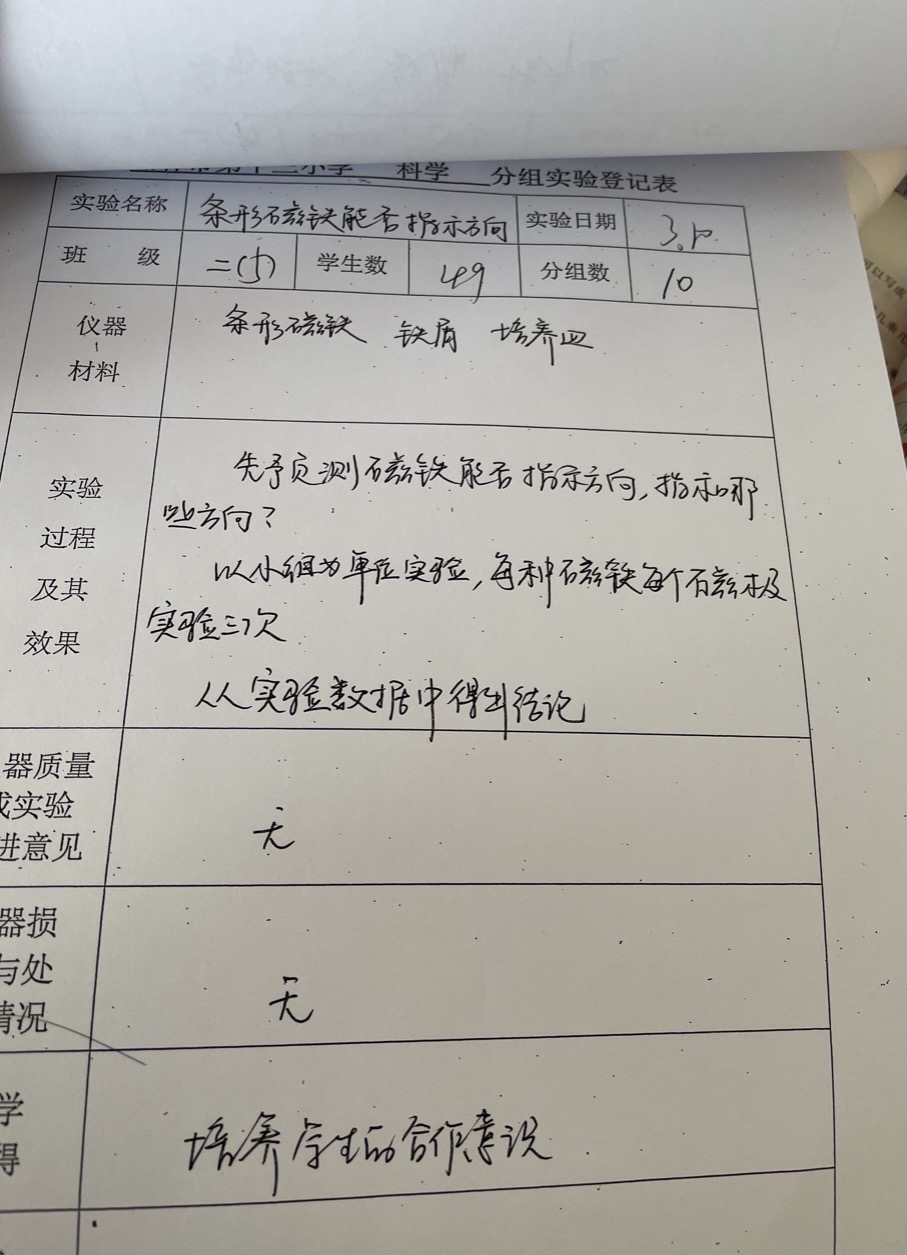 第十二小学 科学 分组实验登记表
实验名称 条形磁铁能否指示方向 实验日期
班 级 二(5) 学生数 49 分组数 10
仪器
材料
条形磁铁 铁屑 培养皿
实验
过程
及其
效果
先予页测磁铁能否指示方向,指示哪
些方向?
以小组为单位实验,每种磁铁每个磁极
实验三次
从实验数据中得出结论
器质量
或实验
进意见
无
器损
与处
情况
无
学
得
培养学生的合作意识